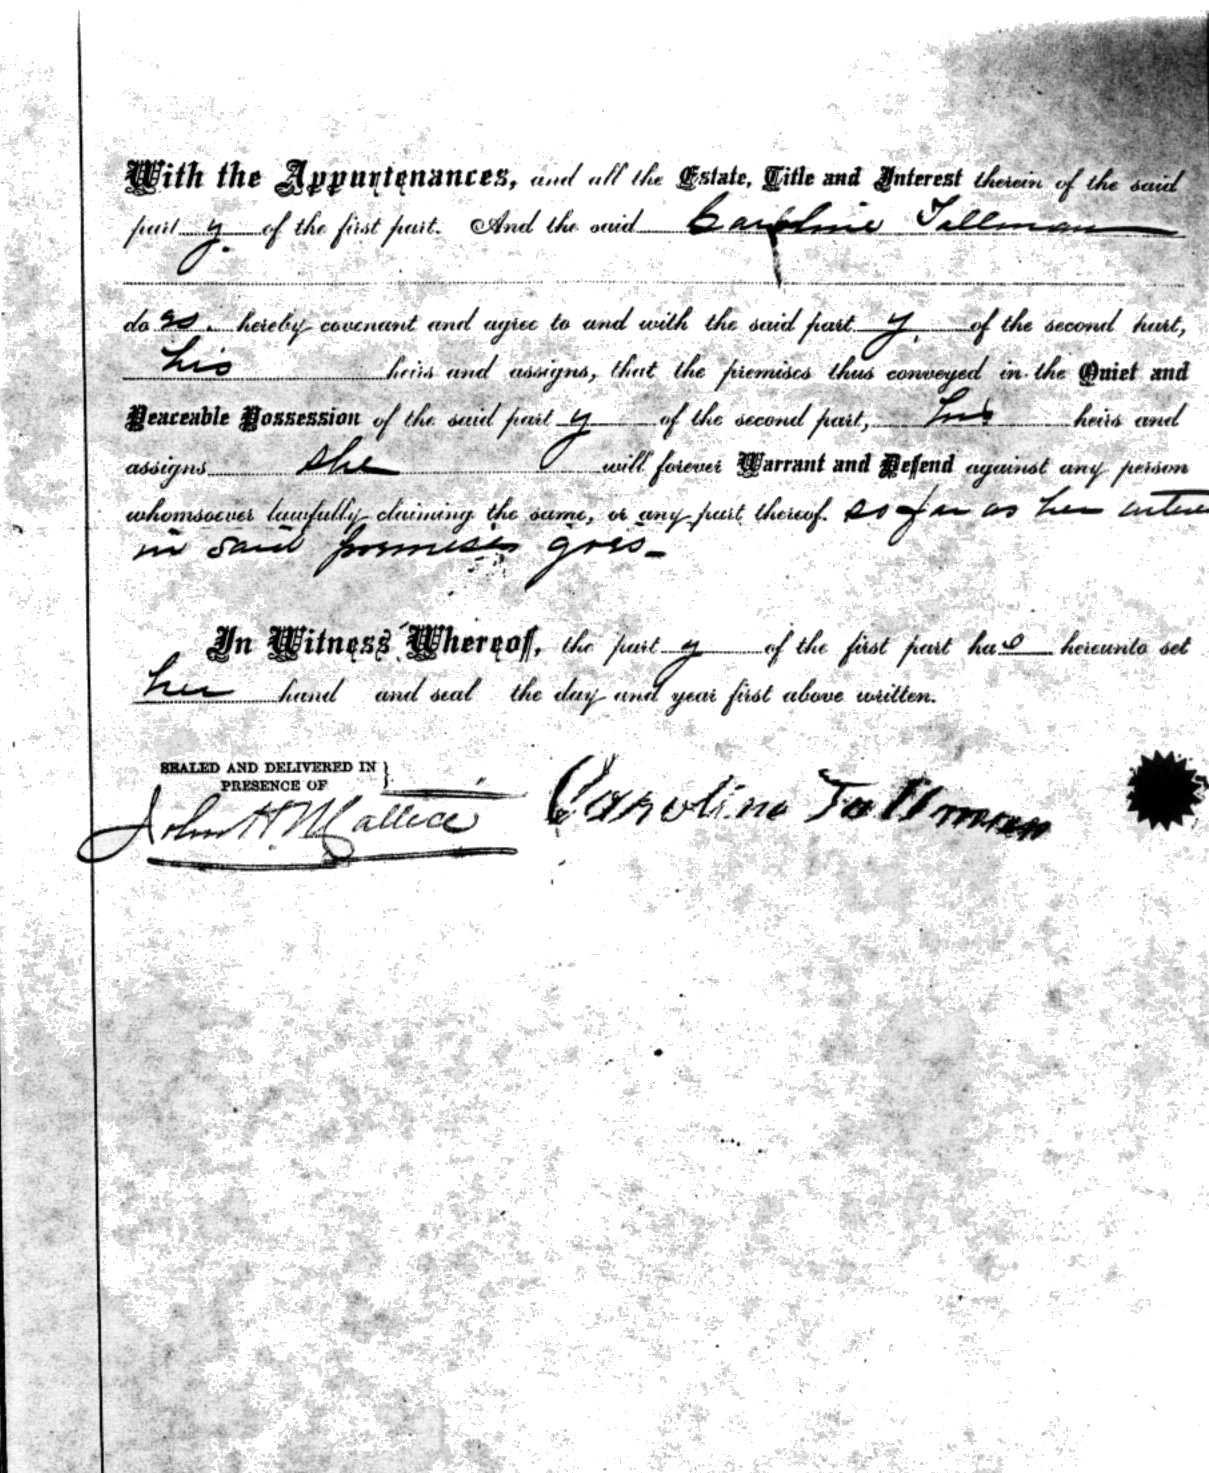 With the Appurtenances, and all the Estate, Title and Interest therein of the said
party of the first part. And the said Caroline Tallman
does hereby covenant and agree to and with the said party of the second part,
his heirs and assigns, that the premises thus conveyed in the Quiet and
Peaceable Possession of the said party of the second part, his heirs and
assigns she will forever Warrant and Defend against any person
whomsoever lawfully claiming the same, or any part thereof. so far as her intere
in said premises goes
In Witness Whereof, the party of the first part has hereunto set
her hand and seal the day and year first above written.
SEALED AND DELIVERED IN
PRESENCE OF
John H Wallace
Caroline Tallman